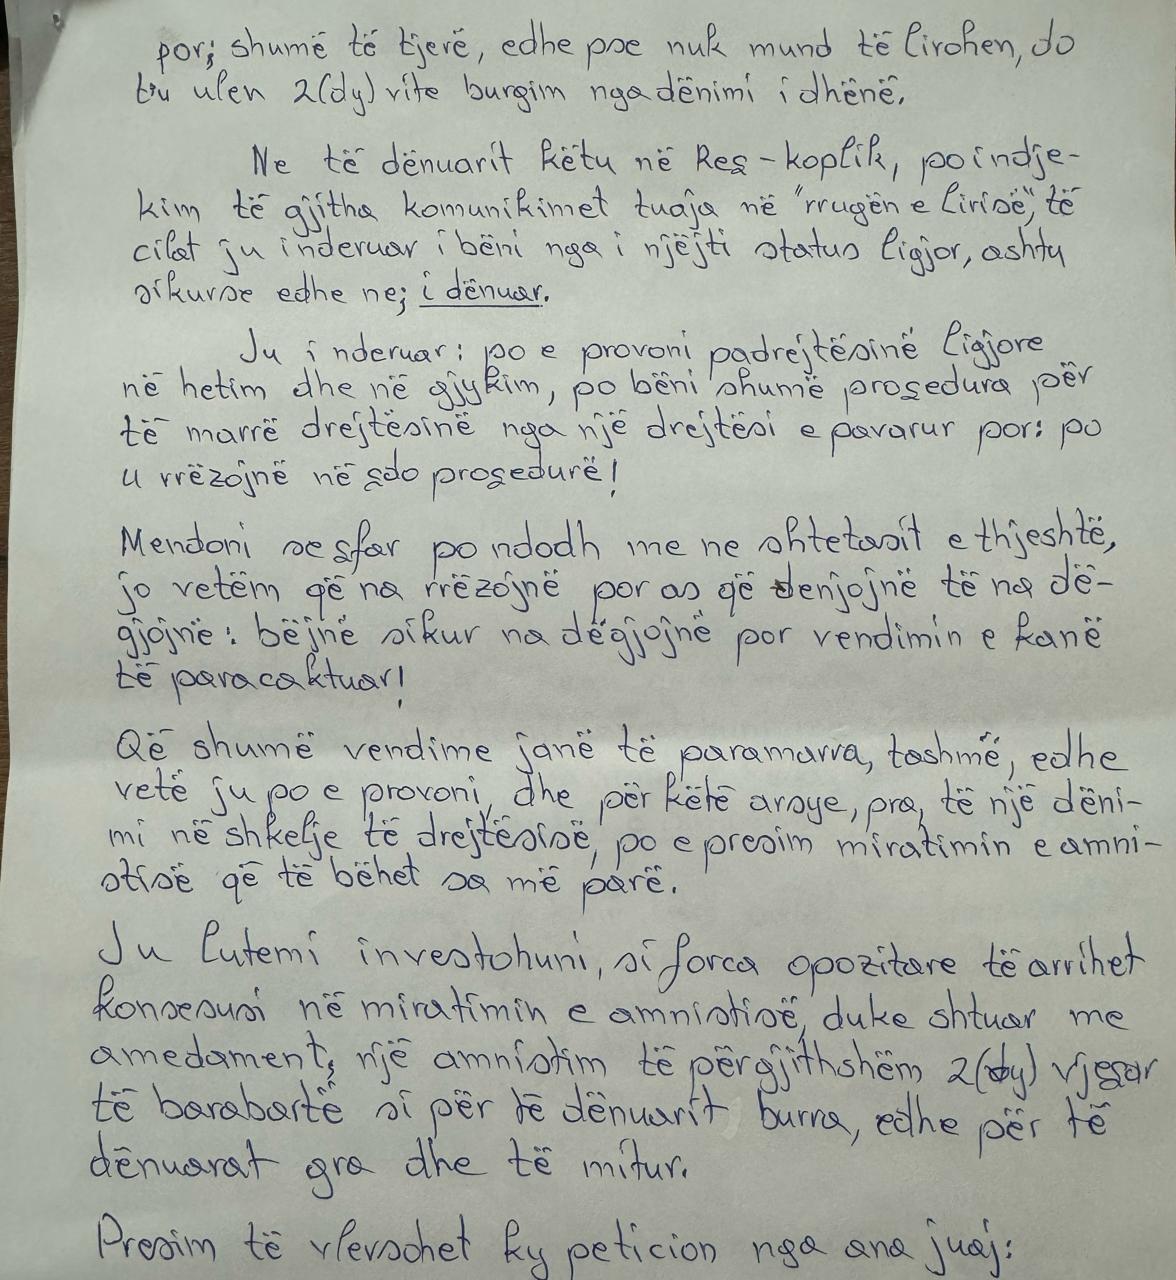 por; shumë të tjerë, edhe pse nuk mund të lirohen, do
tru ulen 2(dy) vite burgim nga dënimi i dhënë.
Ne të dënuarit këtu në Reç-koplik, po indje-
kim të gjitha komunikimet tuaja në "rrugën e lirisë", të
cilat ju inderuar i bëni nga i njëjti status ligjor, ashtu
sikurse edhe ne; i dënuar.
Ju inderuar: po e provoni padrejtësinë ligjore
në hetim dhe në gjykim, po bëni shumë proçedura për
të marrë drejtësinë nga një drejtësi e pavarur por: po
u rrëzojnë në çdo proçedurë!
Mendoni se çfar po ndodh me ne shtetasit e thjeshtë,
jo vetëm që na rrëzojnë por as që denjojnë të na dë-
gjojnë: bëjnë sikur na dëgjojnë por vendimin e kanë
të paracaktuar!
Që shumë vendime janë të paramarra, tashmë, edhe
vetë ju po e provoni, dhe për këtë arsye, pra, të një dëni-
mi në shkelje të drejtësisë, po e presim miratimin e amni-
stisë që të bëhet sa më parë.
Ju lutemi investohuni, si forca opozitare të arrihet
konsesusi në miratimin e amnistisë, duke shtuar me
amedament, një amnistim të përgjithshëm 2(dy) vjeçar
të barabartë si për të dënuarit burra, edhe për të
dënuarat gra dhe të mitur.
Presim të vlersohet ky peticion nga ana juaj: